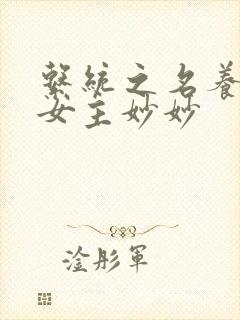 繫統之名養
女主妙妙
淦彤軍